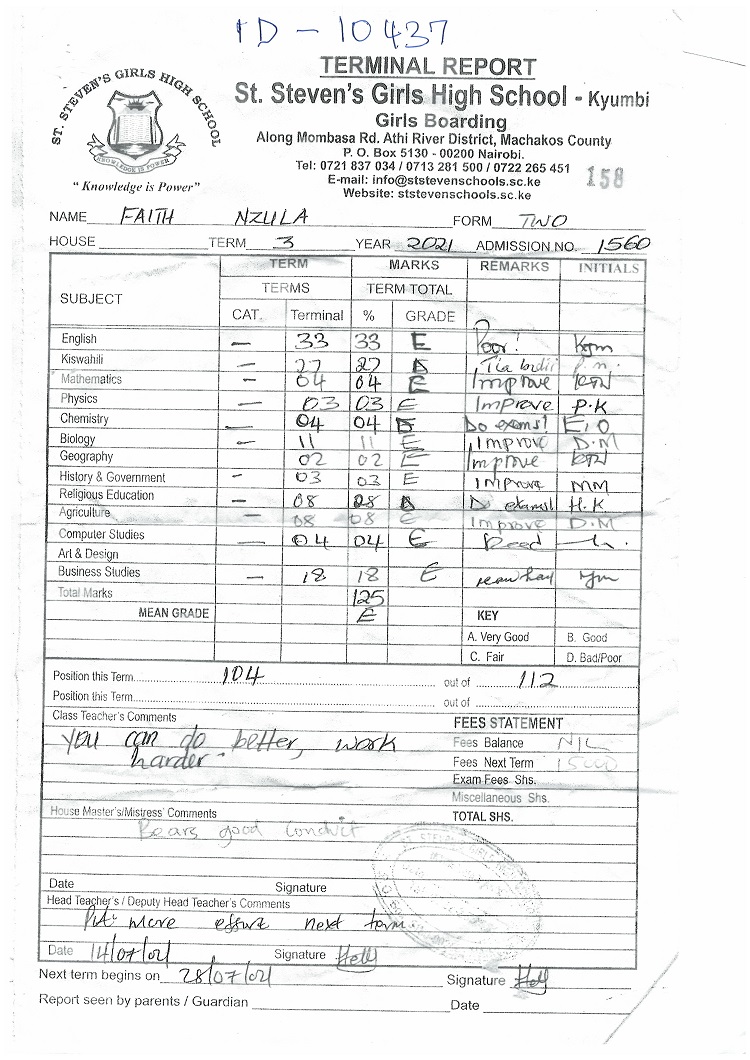 ID - 10437
TERMINAL REPORT
St. Steven's Girls High School - Kyumbi
Girls Boarding
Along Mombasa Rd. Athi River District, Machakos County
P. O. Box 5130 - 00200 Nairobi.
Tel: 0721 837 034 / 0713 281 500 / 0722 265 451
E-mail: info@ststevenschools.sc.ke
Website: ststevenschools.sc.ke
158
ST. STEVEN'S GIRLS HIGH SCHOOL
KNOWLEDGE IS POWER
"Knowledge is Power"
NAME FAITH NZULA FORM TWO
HOUSE TERM 3 YEAR 2021 ADMISSION NO. 1560
TERM MARKS REMARKS INITIALS
SUBJECT TERMS TERM TOTAL
CAT. Terminal % GRADE
English — 33 33 E Poor!
Kiswahili — 27 27 Tia bidii P.M.
Mathematics — 04 04 E Improve
Physics — 03 03 E Improve P.K
Chemistry — 04 04 Do exams! E.O
Biology — 11 11 E Improve D.M
Geography 02 02 E Improve
History & Government — 03 03 E Improve MM
Religious Education — 08 28 Do exams! H.K
Agriculture 08 08 E Improve D.M
Computer Studies — 04 04 E Read
Art & Design
Business Studies — 18 18 E
Total Marks 125
MEAN GRADE E KEY
A. Very Good B. Good
C. Fair D. Bad/Poor
Position this Term 104 out of 112
Position this Term out of
Class Teacher's Comments FEES STATEMENT
You can do better, work Fees Balance NIL
harder. Fees Next Term 15000
Exam Fees Shs.
Miscellaneous Shs.
House Master's/Mistress' Comments TOTAL SHS.
Bears good conduct
Date Signature
Head Teacher's / Deputy Head Teacher's Comments
Put more effort next term.
Date 14/07/021 Signature
Next term begins on 28/07/021 Signature
Report seen by parents / Guardian Date